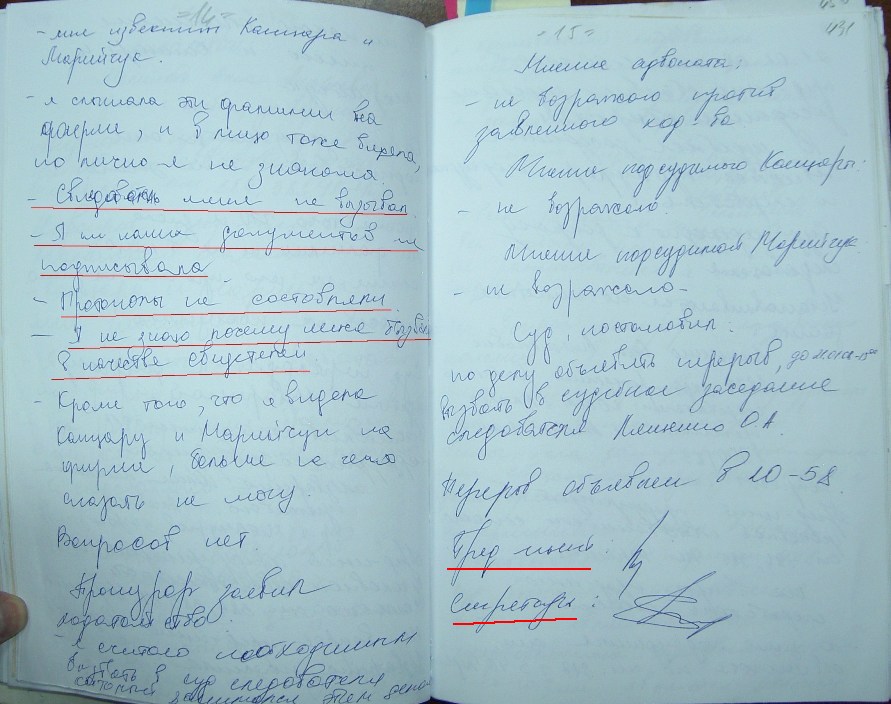 =14=
- мне известны Канцара и
Марийчук.
- я слышала эти фамилии на
фирме, и в лицо тоже видела,
но лично я не знакома
- Следователь меня не вызывал.
- Я ни каких документов не
подписывала
- Протоколы не составляли.
- Я не знаю почему меня вызвали
в качестве свидетелей
- Кроме того, что я видела
Канцару и Марийчук на
фирме, больше ничего
сказать не могу.
Вопросов нет.
Прокурор заявил
ходатайство.
- я считаю необходимым
вызвать в суд следователя
который занимался этим делом
=15=
431
Мнение адвоката:
- не возражаю против
заявленного ход-ва
Мнение подсудимого Канцары:
- не возражаю.
Мнение подсудимой Марийчук.
- не возражаю-
Суд, постановил.
по делу объявить перерыв,
вызвать в судебное заседание
следователя О А.
Перерыв объявлен в 10-58.
Пред-щий:
Секретарь: